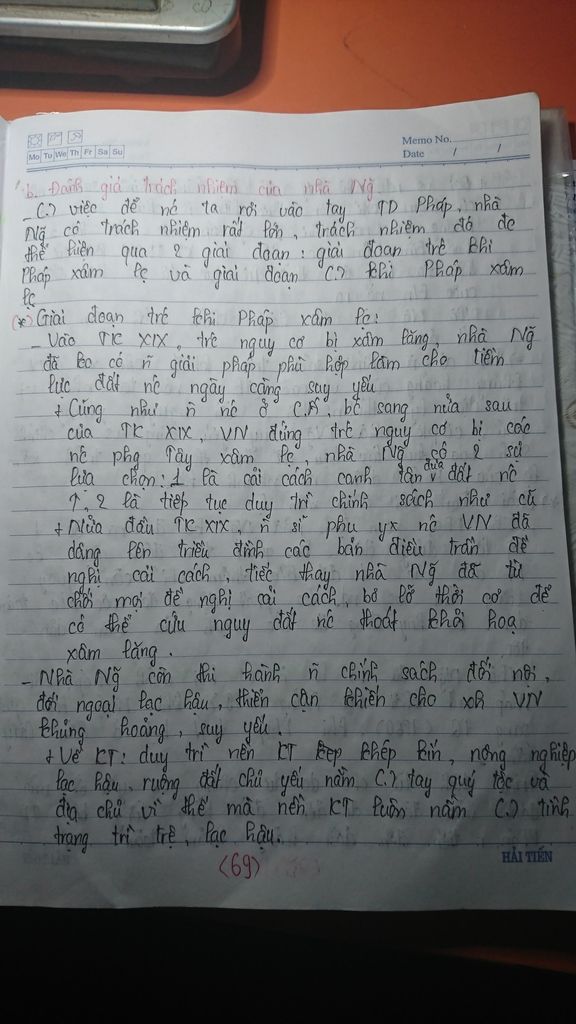 Memo No.
Mo Tu We Th Fr Sa Su
Date / /
b. Đánh giá trách nhiệm của nhà Ng̃
_ C.? việc để nc ta rơi vào tay TD Pháp, nhà
Ng̃ có trách nhiệm rất lớn, trách nhiệm đó đc
thể hiện qua 2 giai đoạn: giai đoạn trc khi
Pháp xâm lc và giai đoạn C.? khi Pháp xâm
lc
(*) Giai đoạn trc khi Pháp xâm lc:
_ Vào TK XIX, trc nguy cơ bị xâm lăng, nhà Ng̃
đã ko có ñ giải pháp phù hợp làm cho tiềm
lực đất nc ngày càng suy yếu
+ Cũng như ñ nc ở C.Á, bc sang nửa sau
của TK XIX, VN đứng trc nguy cơ bị các
nc phg Tây xâm lc, nhà Ng̃ có 2 sự
lựa chọn: 1 là cải cách canh tân đưa đất nc
↑, 2 là tiếp tục duy trì chính sách như cũ
+ Nửa đầu TK XIX, ñ sĩ phu yx nc VN đã
dâng lên triều đình các bản điều trần đề
nghị cải cách, tiếc thay nhà Ng̃ đã từ
chối mọi đề nghị cải cách, bỏ lỡ thời cơ để
có thể cứu nguy đất nc thoát khỏi hoạ
xâm lăng.
_ Nhà Ng̃ còn thi hành ñ chính sách đối nội,
đối ngoại lạc hậu, thiển cận khiến cho xh VN
khủng hoảng, suy yếu.
+ Về KT: duy trì nền KT khép kín, nông nghiệp
lạc hậu, ruộng đất chủ yếu nằm C.? tay quý tộc và
địa chủ vì thế mà nền KT luôn nằm C.? tình
trạng trì trệ, lạc hậu.
HẢI TIẾN
(69)